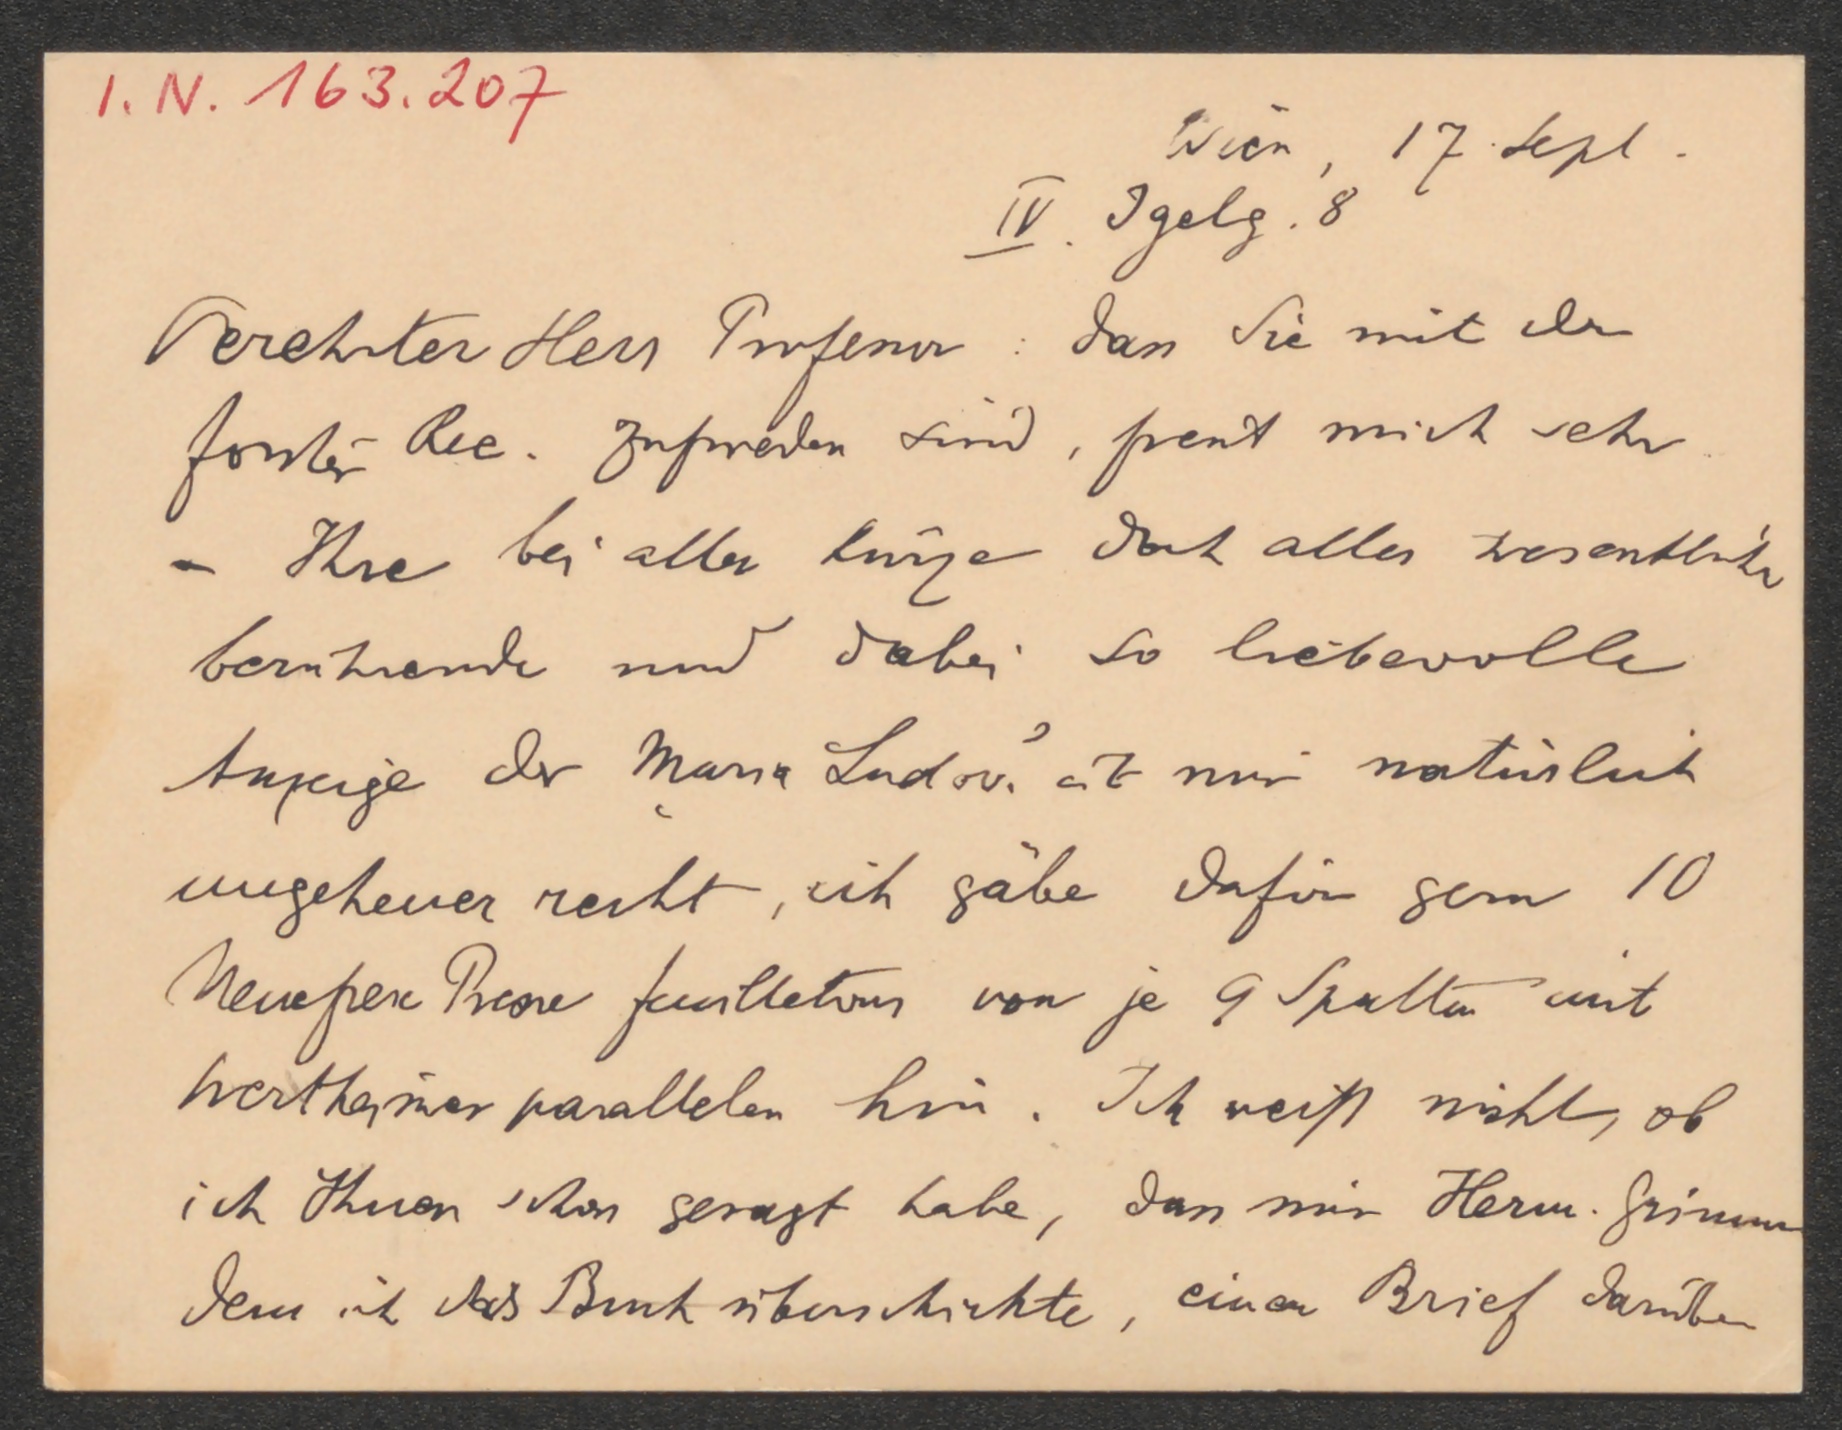 I. N. 163.207
Wien, 17. Sept.
IV. Igelg. 8
Verehrter Herr Professor: dass Sie mit der
Forster Rec. zufrieden sind, freut mich sehr
– Ihre bei aller Kürze doch alles wesentliche
berührende und dabei so liebevolle
Anzeige der Maria Ludov. ist mir natürlich
ungeheuer recht, ich gäbe dafür gern 10
Neuefreie Presse feuilletons von je 9 Spalten mit
Wertheimer parallelen hin. Ich weiß nicht, ob
ich Ihnen schon gesagt habe, dass mir Herm. Grimm
dem ich das Buch überschickte, einen Brief darüber